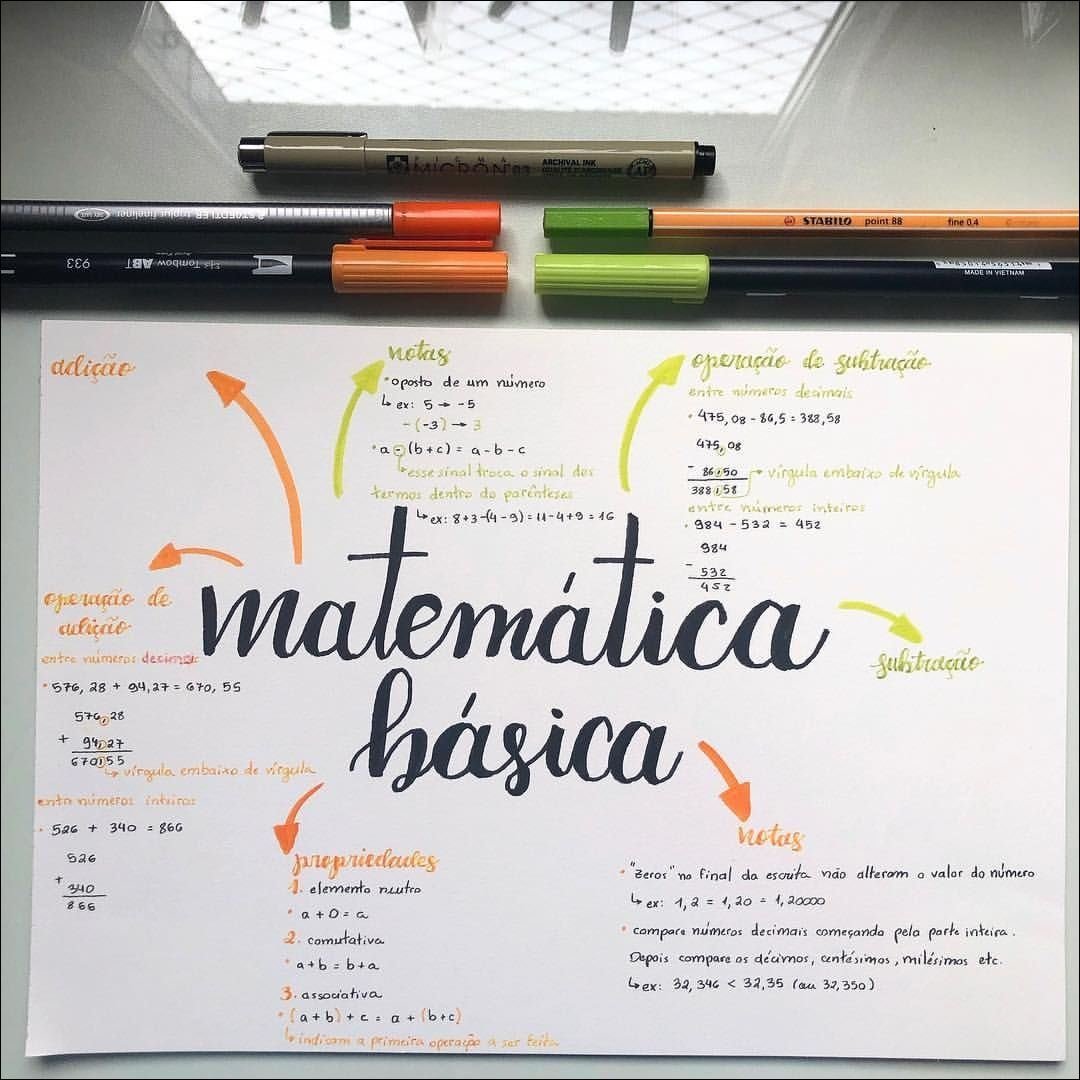 SIGMA
MICRON 03
ARCHIVAL INK
STAEDTLER triplus fineliner
STABILO point 88 fine 0.4
933 Tombow ABT
MADE IN VIETNAM
adição
notas
• oposto de um número
↳ ex: 5 → -5
-(-3) → 3
• a - (b+c) = a - b - c
↳ esse sinal troca o sinal dos
termos dentro do parênteses
↳ ex: 8+3-(4-9) = 11-4+9 = 16
operação de subtração
entre números decimais
• 475,08 - 86,5 = 388,58
475,08
- 86,50 → vírgula embaixo de vírgula
388,58
entre números inteiros
• 984 - 532 = 452
984
- 532
452
matemática
básica
subtração
operação de
adição
entre números decimais
• 576,28 + 94,27 = 670,55
576,28
+ 94,27
670,55
↳ vírgula embaixo de vírgula
entre números inteiros
• 526 + 340 = 866
526
+ 340
866
propriedades
1. elemento neutro
• a + 0 = a
2. comutativa
• a+b = b+a
3. associativa
• (a+b) + c = a + (b+c)
↳ indicam a primeira operação a ser feita
notas
• "zeros" no final da escrita não alteram o valor do número
↳ ex: 1,2 = 1,20 = 1,20000
• compare números decimais começando pela parte inteira.
Depois compare os décimos, centésimos, milésimos etc.
↳ ex: 32,346 < 32,35 (ou 32,350)